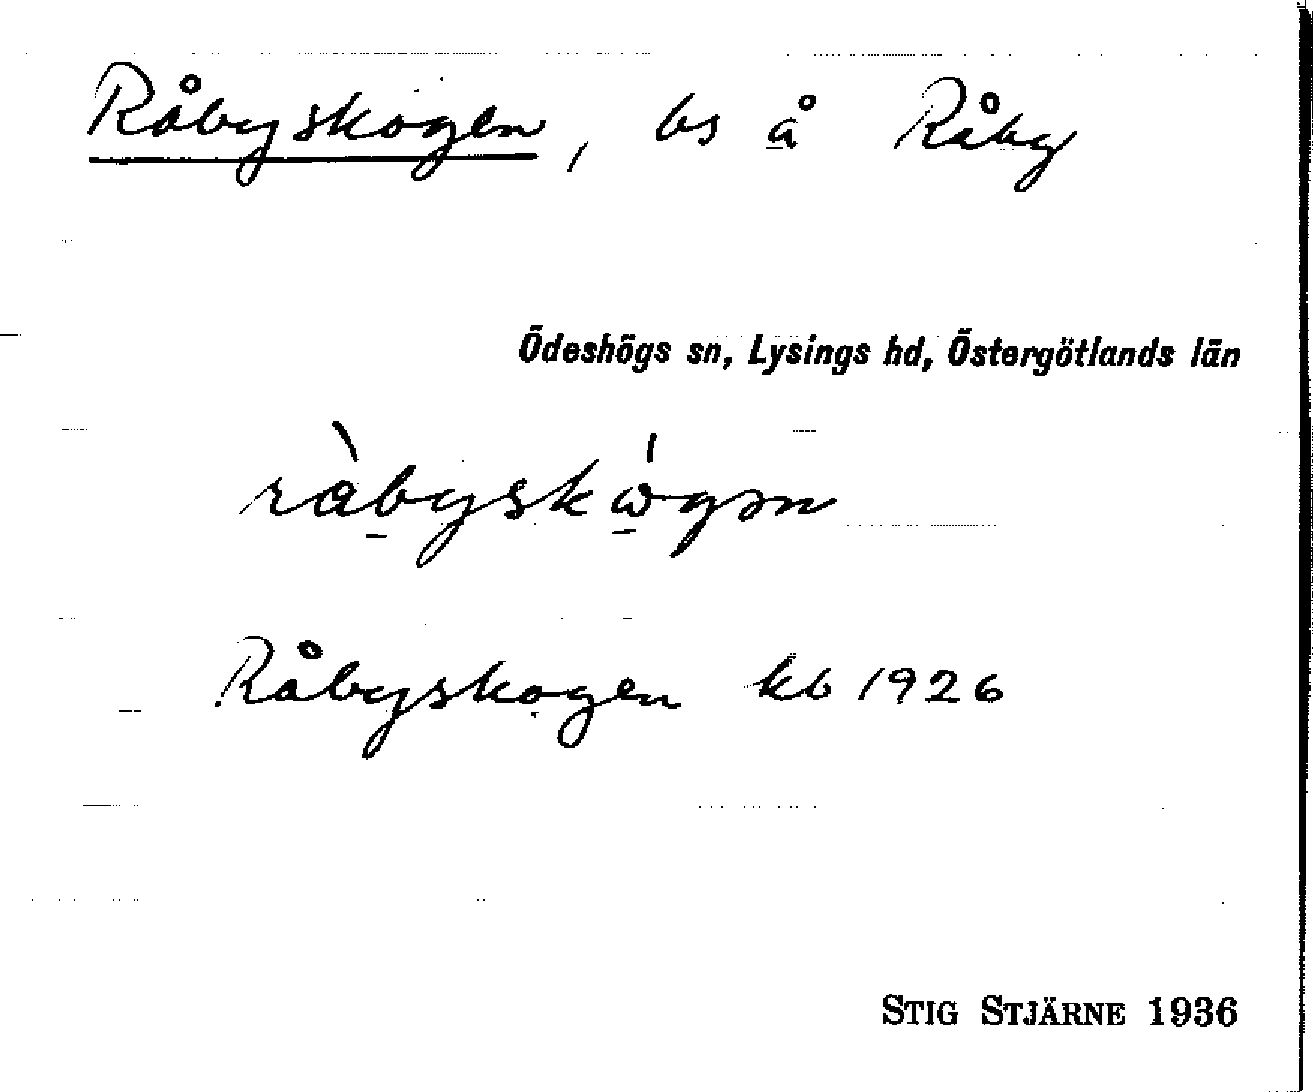 Råbyskogen, bs å Råby
Ödeshögs sn, Lysings hd, Östergötlands län
Råbyskogen kb 1926
STIG STJÄRNE 1936